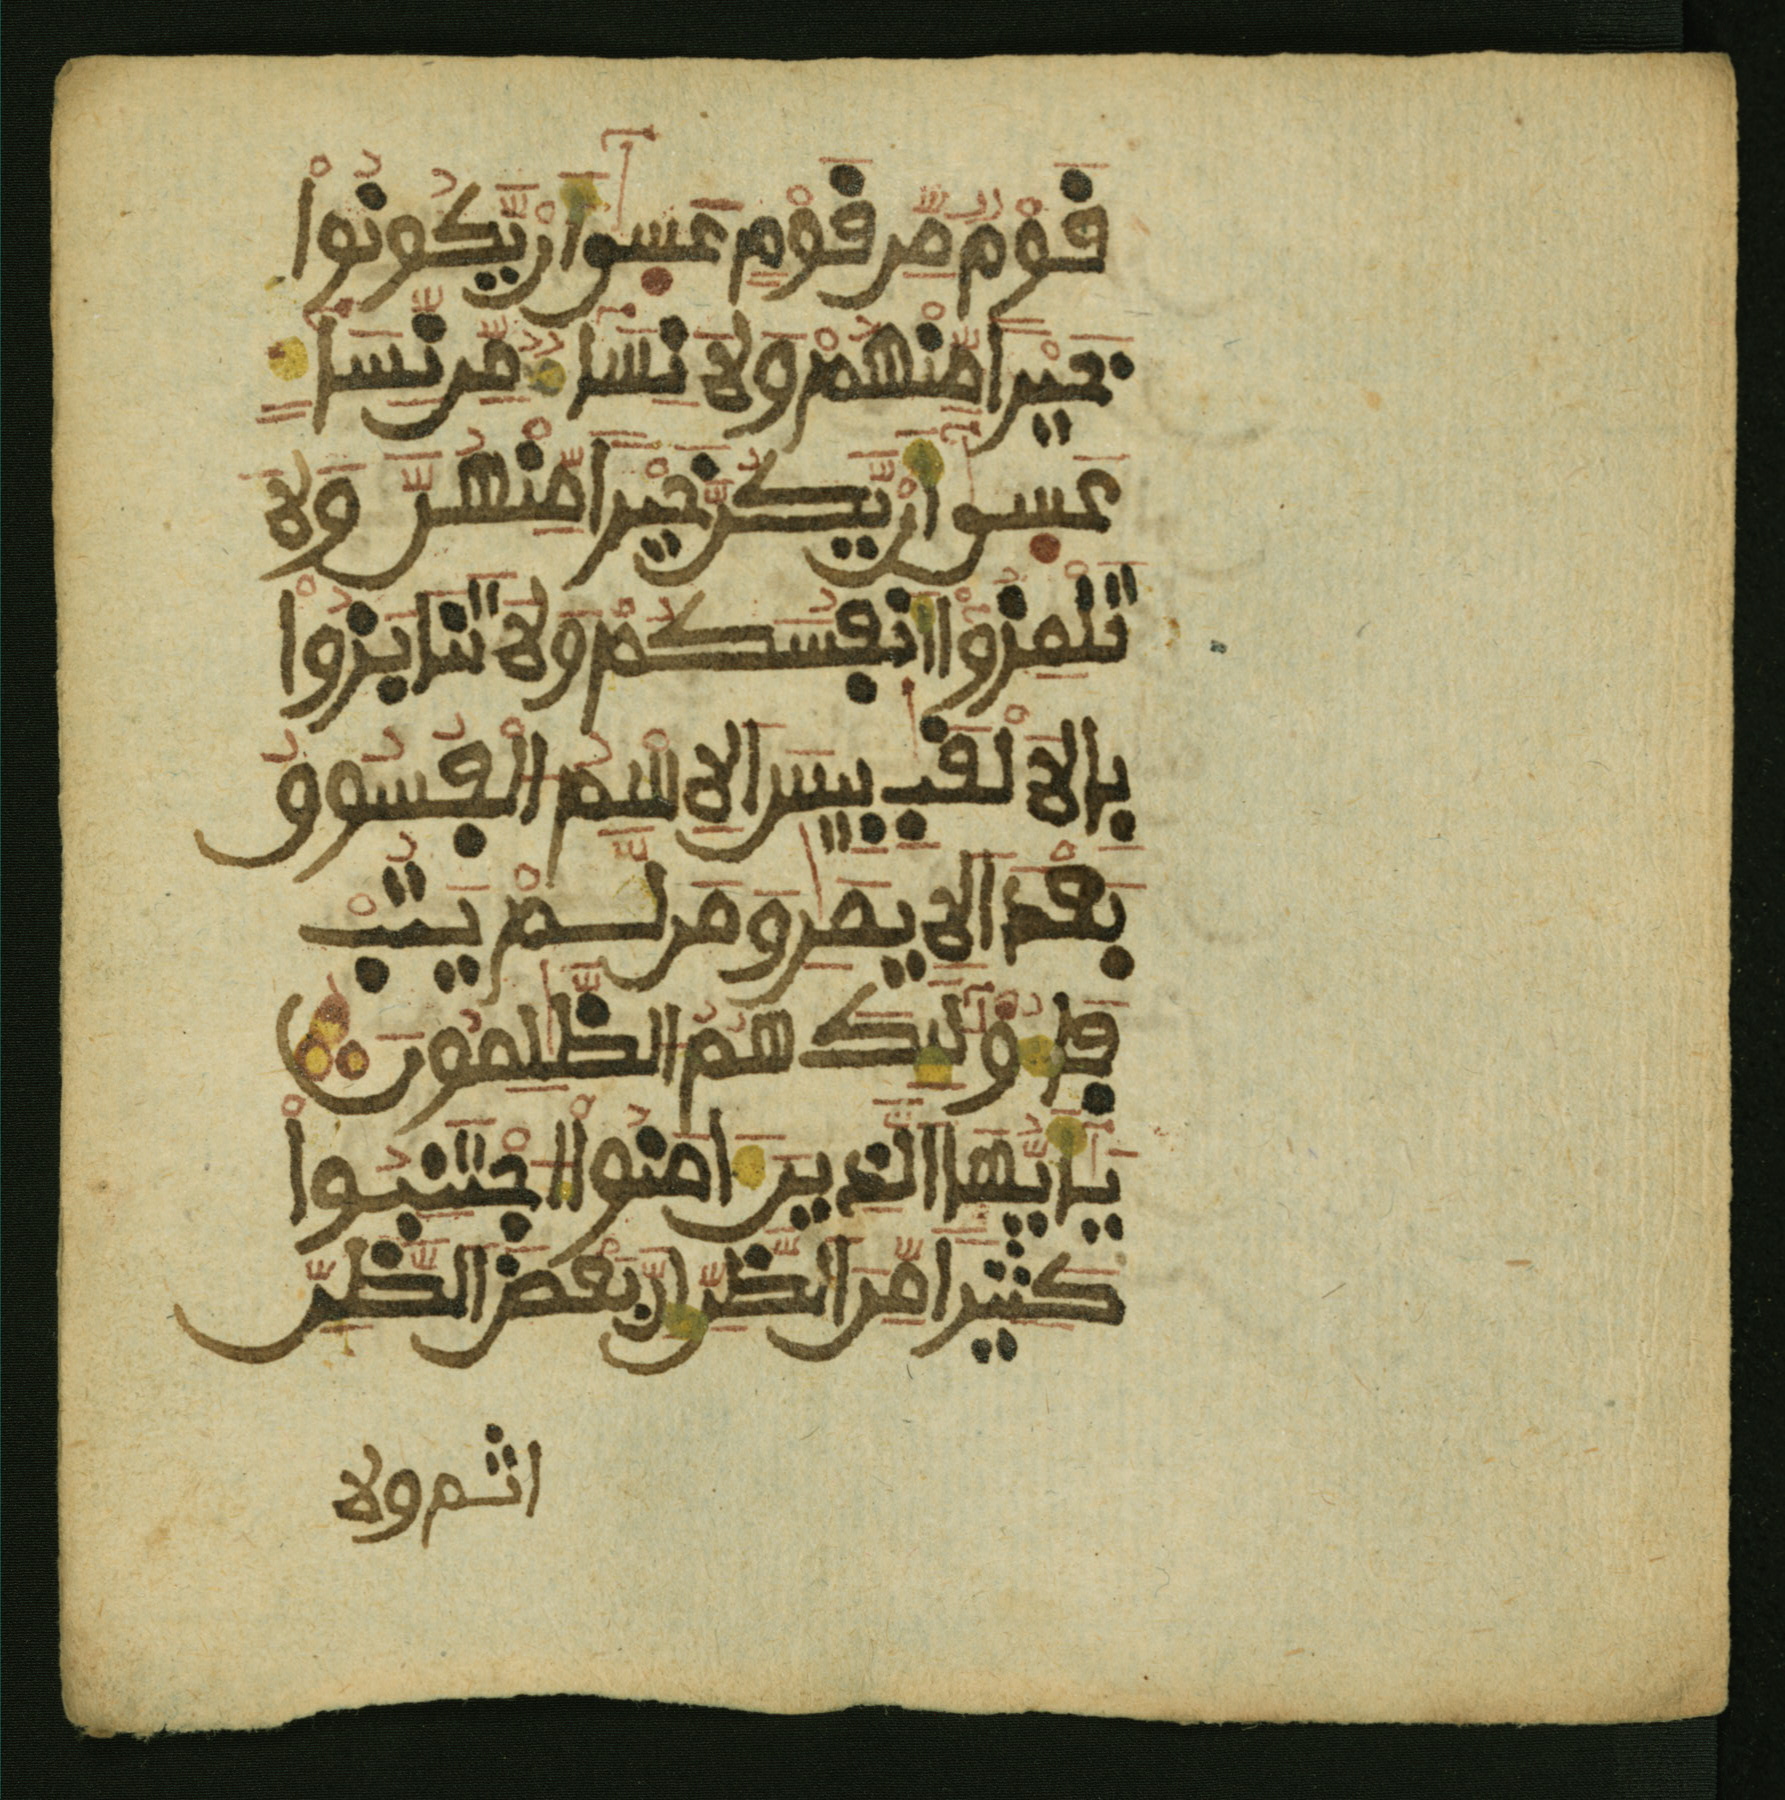 قَوْمٌ مِّن قَوْمٍ عَسىٰٓ أَنْ يَّكُونُواْ
خَيْراً مِّنْهُمْ وَلَا نِسَآءٌ مِّن نِّسَآءٍ
عَسىٰٓ أَنْ يَّكُنَّ خَيْراً مِّنْهُنَّ وَلَا
تَلْمِزُوٓاْ أَنفُسَكُمْ وَلَا تَنَابَزُواْ
بِالَالْقَٰبِ بِيسَ الِاسْمُ الْفُسُوقُ
بَعْدَ الِايمَٰنِ وَمَن لَّمْ يَتُبْ
فَأُوْلَٰٓئِكَ هُمُ الظَّٰلِمُونَ
يَٰٓأَيُّهَا الَّذِينَ ءَامَنُواْ اجْتَنِبُواْ
كَثِيراً مِّنَ الظَّنِّ إِنَّ بَعْضَ الظَّنِّ
اثم ولا